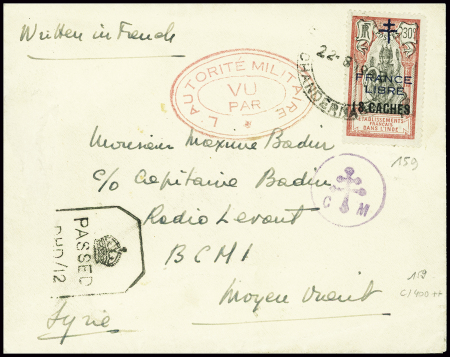 Written in French
L'AUTORITÉ MILITAIRE
VU
PAR
22-
CHANDERNA
30
FRANCE
LIBRE
18 CACHES
ÉTABLISSEMENTS
FRANÇAIS
DANS L'INDE
Monsieur Maxime Badin
159
c/o Capitaine Badin
Radio Levant
C M
BCM1
Moyen Orient
Syrie
PASSED
DHD/12
159
C/400++